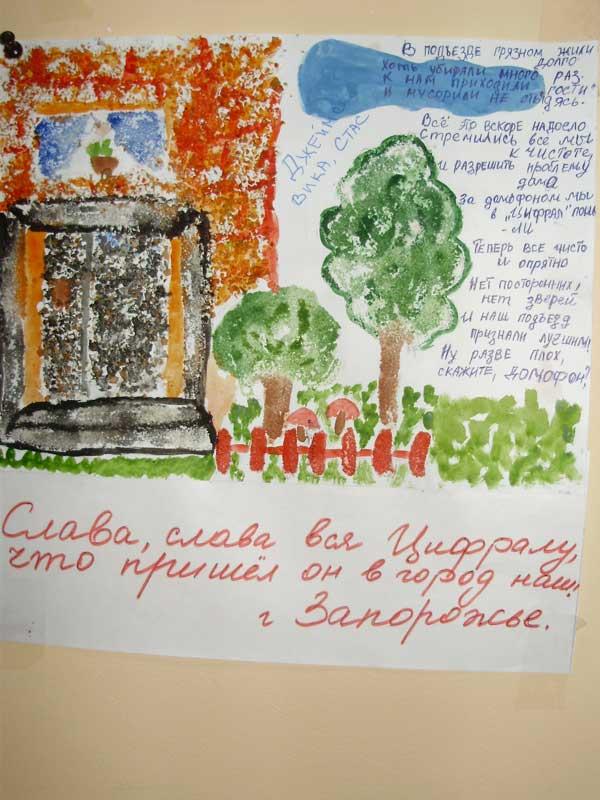 В ПОДЪЕЗДЕ ГРЯЗНОМ ЖИЛИ
ДОЛГО
ХОТЬ УБИРАЛИ МНОГО РАЗ,
К НАМ ПРИХОДИЛИ "ГОСТИ"
И МУСОРИЛИ НЕ СТЫДЯСЬ.
ВСЁ ЭТО ВСКОРЕ НАДОЕЛО
СТРЕМИЛИСЬ ВСЕ МЫ
К ЧИСТОТЕ,
И РАЗРЕШИТЬ ПРОБЛЕМУ
ДОМА
ЗА ДОМОФОНОМ МЫ
В "ЦИФРАЛ" ПОШ
-ЛИ
ТЕПЕРЬ ВСЕ ЧИСТО
И ОПРЯТНО
НЕТ ПОСТОРОННИХ,
НЕТ ЗВЕРЕЙ
И НАШ ПОДЪЕЗД
ПРИЗНАЛИ ЛУЧШИМ!
НУ РАЗВЕ ПЛОХ,
СКАЖИТЕ, ДОМОФОН?
ВИКА, СТАС
Слава, слава вся Цифралу,
что пришёл он в город наш!
г Запорожье.